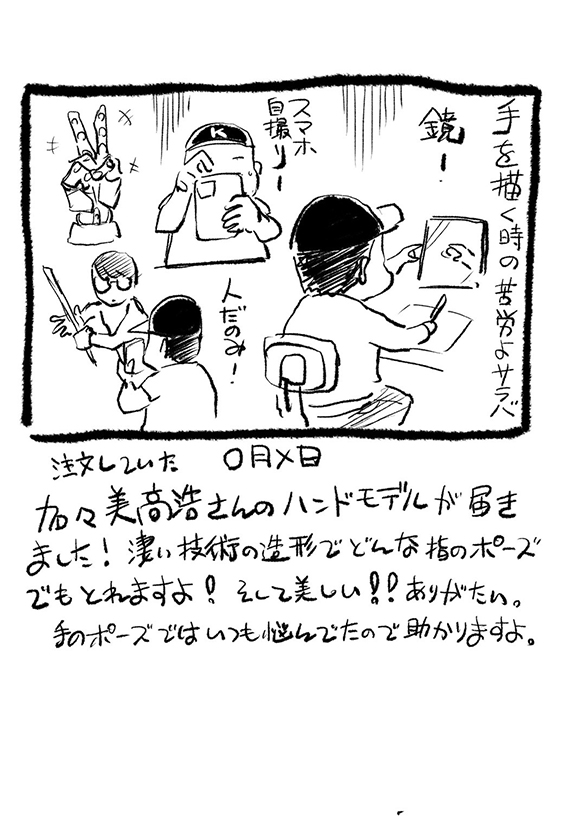 手を描く時の苦労よサラバ
鏡ー
スマホ
自撮りー
K
人だのみ!
注文していた 〇月×日
加々美高浩さんのハンドモデルが届き
ました!凄い技術の造形でどんな指のポーズ
でもとれますよ!そして美しい!!ありがたい。
手のポーズではいつも悩んでたので助かりますよ。